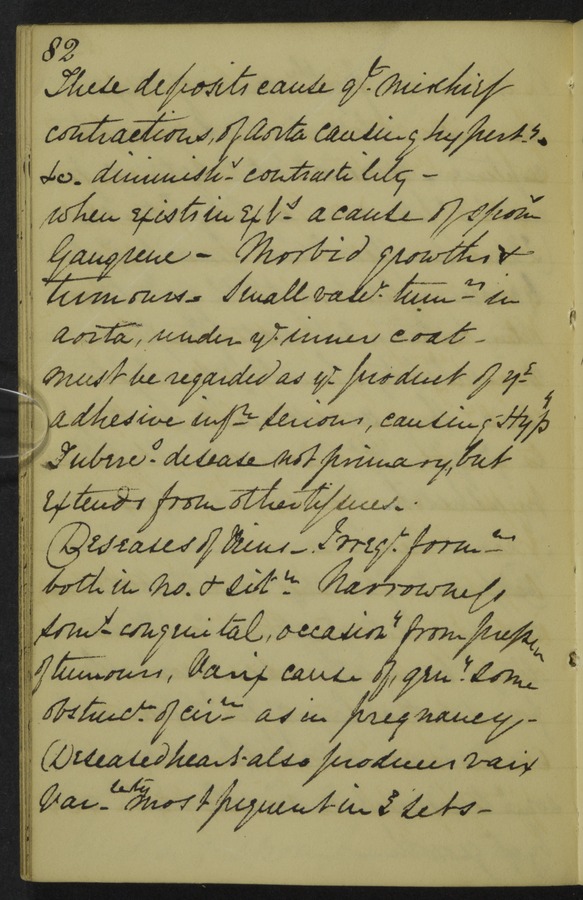 82
These deposits cause gt. mischief
contractions, of aorta causing hypert.y.
&c. diminishd contractility -
when exists in Exts a cause of spons
Gangrene - Morbid growths &
tumours. Small vasc. tumrs in
aorta, under ye inner coat -
must be regarded as ye product of ye
adhesive infn serious, causing Hypy
Tuberc. disease not primary, but
extends from other tissues.
Diseases of Veins - Irregr. formns
both in no. & sitn. Narrowness
somt congenital, occasiony from pressn
of tumours, Varix cause of, geny. some
obstructn of circn as in pregnancy -
Diseased heart also produces varix
Var-icty most frequent in 3 sets -